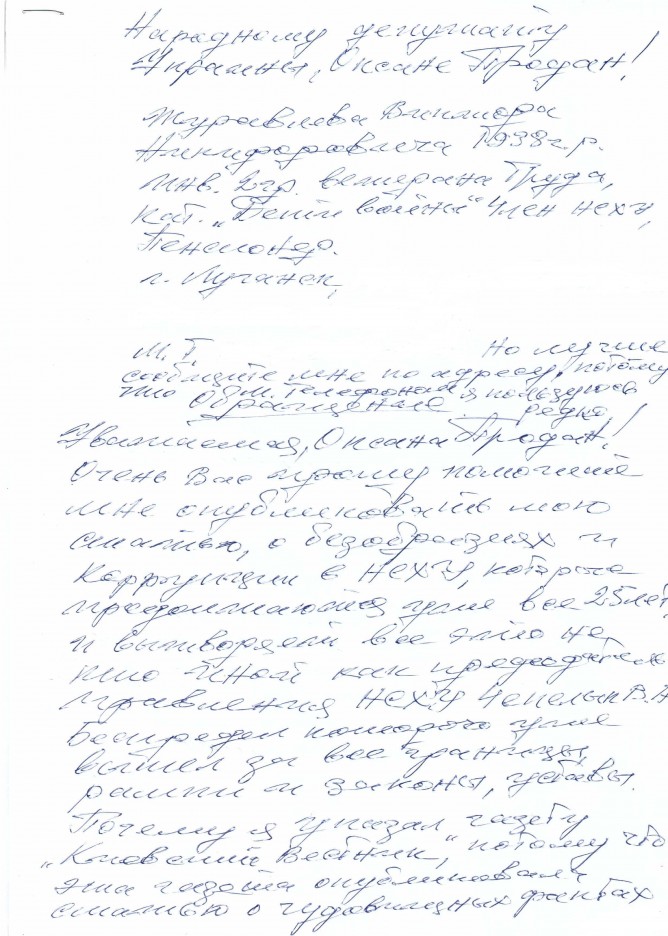 Народному депутату
Украины, Оксане Продан!
Журавлева Виктора
Никифоровича 1938г.р.
инв. 2гр. ветерана Труда,
кат. „Дети войны" Член НСХУ,
Пенсионер.
г. Луганск,
М. Т. Но лучше
сообщите мне по адресу, потому
что моб. телефоном я пользуюсь
Обращение редко
Уважаемая, Оксана Продан!
Очень Вас прошу помочь
мне опубликовать мою
статью, о безобразиях и
Коррупции в НСХУ, которые
продолжаются уже все 25 лет,
и вытворяет все это не
кто иной как председатель
правления НСХУ Чепелык В.А
Беспредел которого уже
вышел за все границы,
рамки и законы, уставы.
Почему я указал газету
„Киевский Вестник," потому что
эта газета опубликовала
статью о чудовищных фактах